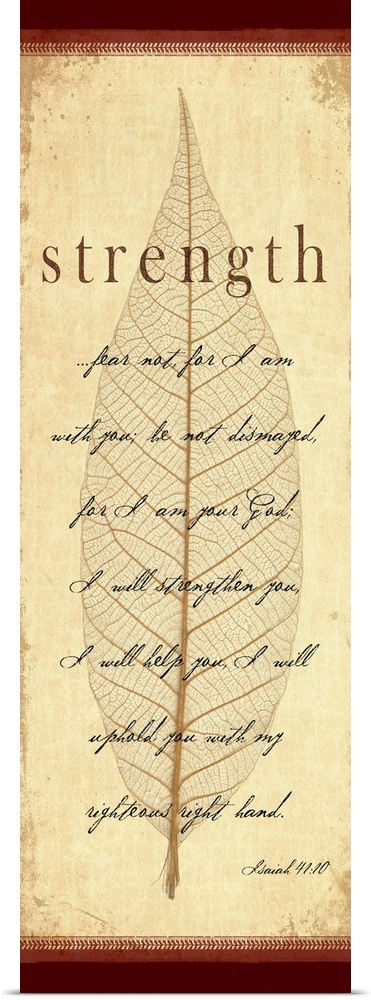 strength
...fear not, for I am
with you; be not dismayed,
for I am your God;
I will strengthen you,
I will help you, I will
uphold you with my
righteous right hand.
Isaiah 41:10